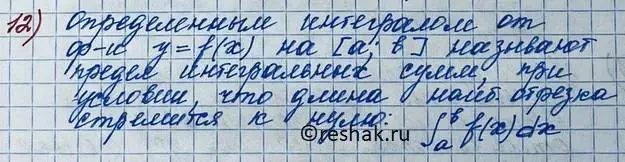 12) Определенным интегралом от
ф-и y=f(x) на [a; b] называют
предел интегральных сумм, при
условии, что длина наиб. отрезка
стремится к нулю: ∫ₐᵇ f(x)dx
©reshak.ru